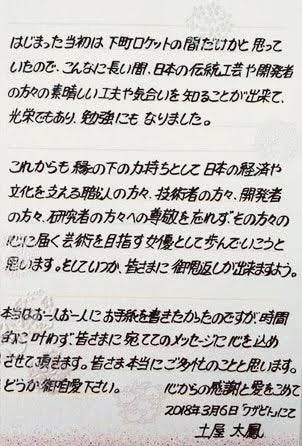 はじまった当初は下町ロケットの間だけかと思って
いたので、こんなに長い間、日本の伝統工芸や開発者
の方々の素晴しい工夫や気合いを知ることが出来て、
光栄でもあり、勉強にもなりました。
これからも縁の下の力持ちとして日本の経済や
文化を支える職人の方々、技術者の方々、開発者
の方々、研究者の方々への尊敬を忘れずその方々の
心に届く芸術を目指す女優として歩んでいこうと
思います。そしていつか、皆さまに御恩返しが出来ますよう。
本当はお一人お一人にお手紙を書きたかったのですが、時間
的に叶わず、皆さまに宛ててのメッセージに心を込め
させて頂きます。皆さま本当にご多忙のことと思います。
どうか御自愛下さい。 心からの感謝と愛をこめて
2018年3月6日「ワザビト」にて
土屋 太鳳